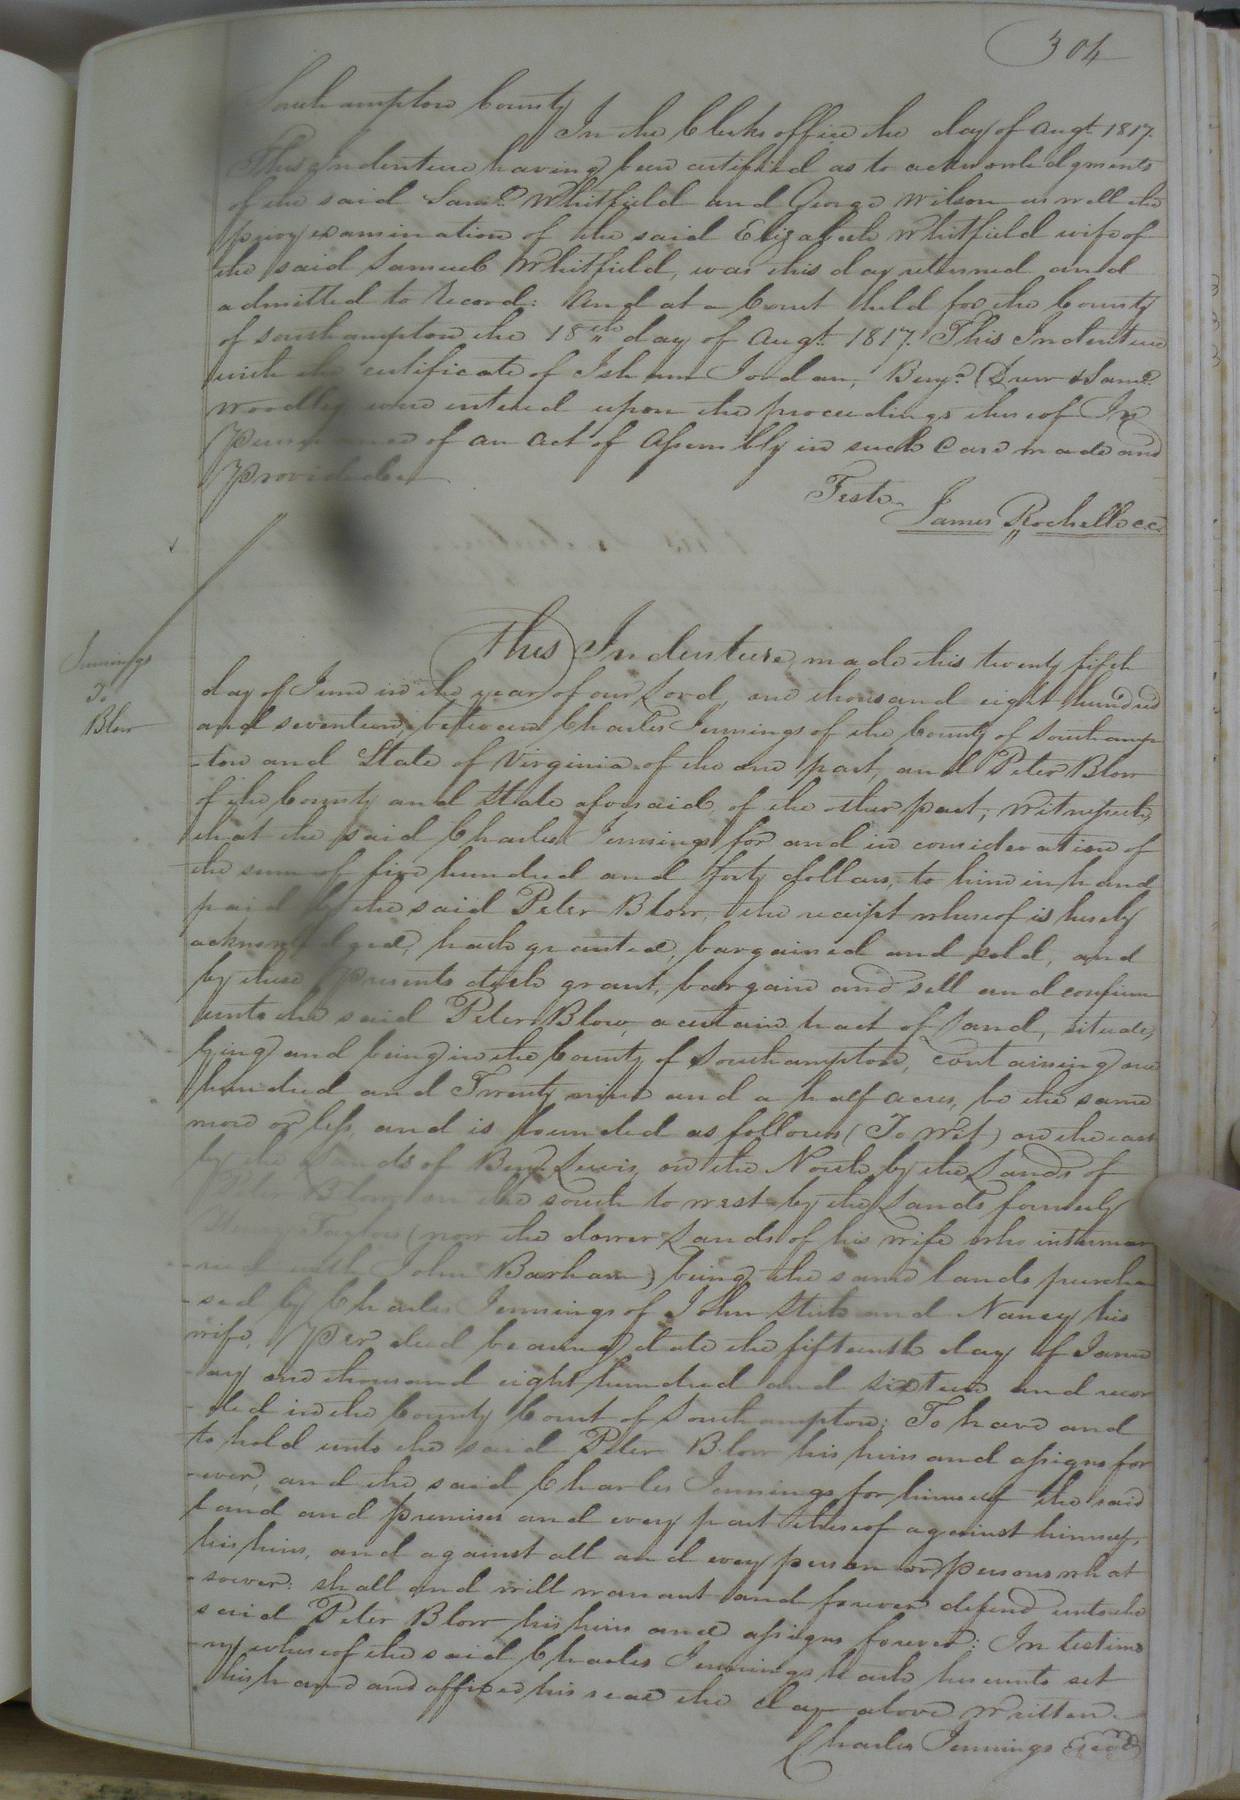 304
Southampton County
In the Clerks office the day of Augt. 1817.
This Indenture having been certified as to acknowledgments
of the said Saml. Whitfield and George Wilson as well the
privy examination of the said Elizabeth Whitfield wife of
the said Samuel Whitfield, was this day returned and
admitted to Record: And at a Court held for the County
of Southampton the 18th day of Augt. 1817. This Indenture
with the certificate of Isham Jordan, Benja. Drew & Saml.
Woodley were entered upon the proceedings thereof In
Pursuance of an Act of Assembly in such Case made and
Provided
Teste
James Rochelle c.c.
Jennings
To
Blow
This Indenture, made this twenty fifth
day of June in the year of our Lord, one thousand eight hundred
and seventeen, between Charles Jennings of the County of Southamp
-ton and State of Virginia of the one part, and Peter Blow
of the County and State aforesaid of the other part; Witnesseth,
that the said Charles Jennings for and in consideration of
the sum of five hundred and forty dollars, to him in hand
paid by the said Peter Blow, the receipt whereof is hereby
acknowledged, hath granted, bargained and sold, and
by these presents doth grant, bargain and sell and confirm
unto the said Peter Blow, a certain tract of Land, situate,
lying and being in the County of Southampton, containing one
hundred and Twenty nine and a half acres, be the same
more or less, and is bounded as follows (To Wit) on the east
by the Lands of Benja. Lewis, on the North by the Lands of
Peter Blow on the south to west by the Lands formerly
Taylors (now the dower Lands of his wife who intermar
-ried with John Barham) being the same lands purcha
-sed by Charles Jennings of John and Nancy his
wife, Per deed bearing date the fifteenth day of Janu
-ary one thousand eight hundred and sixteen and recor
-ded in the County Court of Southampton; To have and
to hold unto the said Peter Blow his heirs and assigns for
-ever, and the said Charles Jennings for himself the said
Land and premises and every part thereof against himself,
his heirs, and against all and every person or persons what
-soever: shall and will warrant and forever defend unto the
said Peter Blow his heirs and assigns forever: In testimo
-ny whereof the said Charles Jennings hath hereunto set
his hand and affixed his seal the day above written.
Charles Jennings Seal